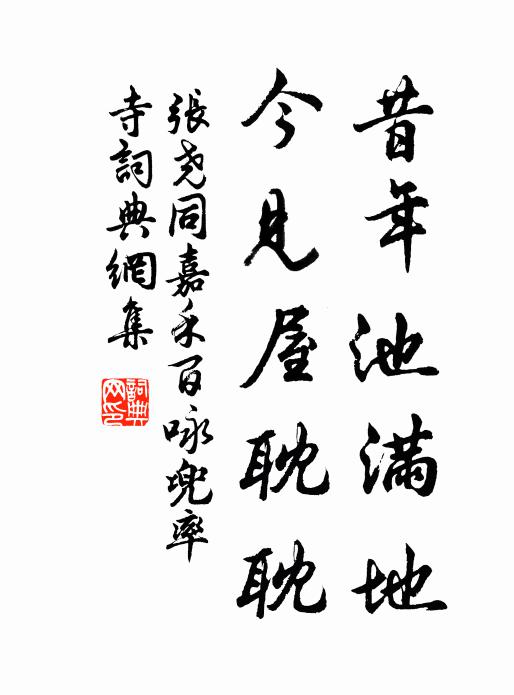 昔年池滿地
今見屋耽耽
張堯同嘉禾百咏兜率
寺詞典網集
詞典
网印